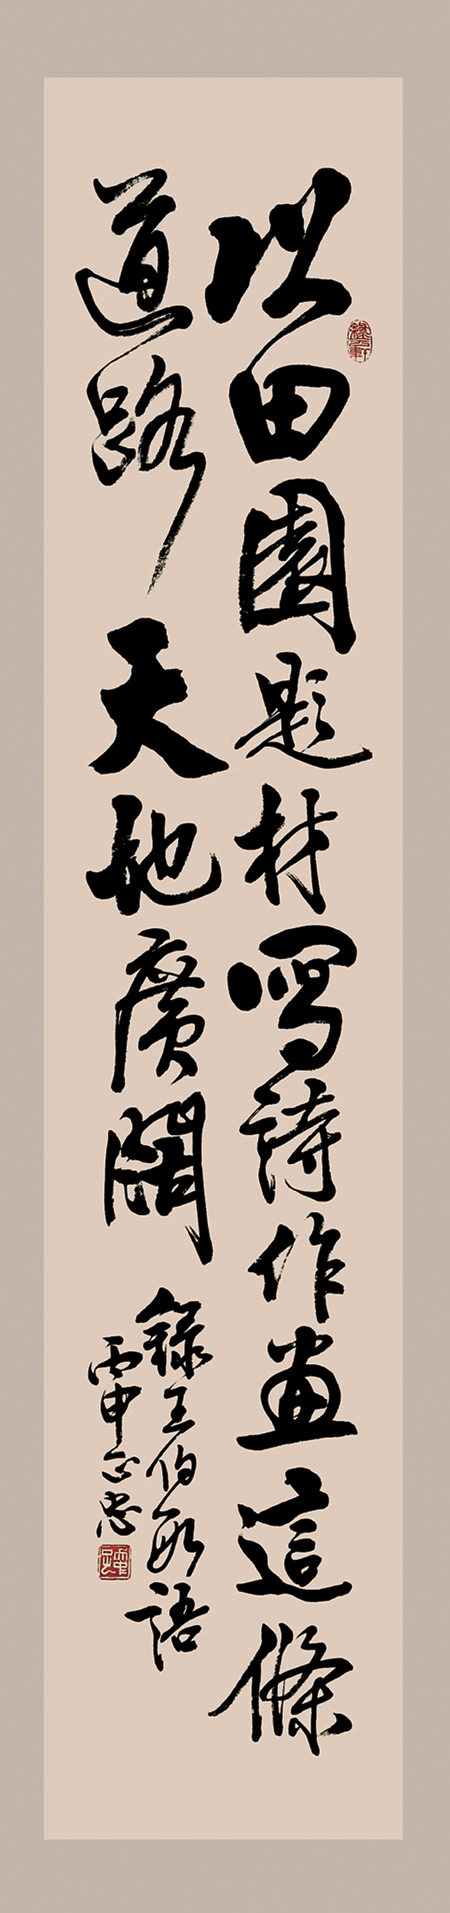 以田園題材寫詩作畫這條
道路天地廣闊
錄王伯敏語
丙申正忠